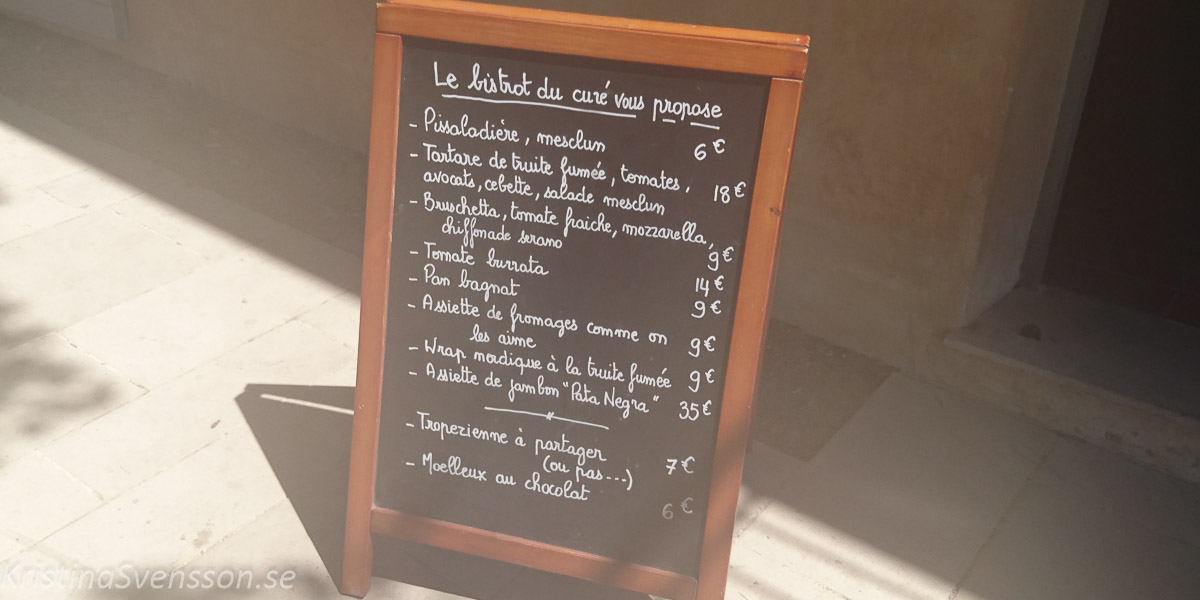 Le bistrot du curé vous propose
- Pissaladière, mesclun 6€
- Tartare de truite fumée, tomates,
avocats, cebette, salade mesclun 18€
- Bruschetta, tomate fraiche, mozzarella,
chiffonade serano 9€
- Tomate burrata 14€
- Pan bagnat 9€
- Assiette de fromages comme on
les aime 9€
- Wrap nordique à la truite fumée 9€
- Assiette de jambon "Pata Negra" 35€
- Tropezienne à partager
(ou pas---) 7€
- Moelleux au chocolat 6€
KristinaSvensson.se